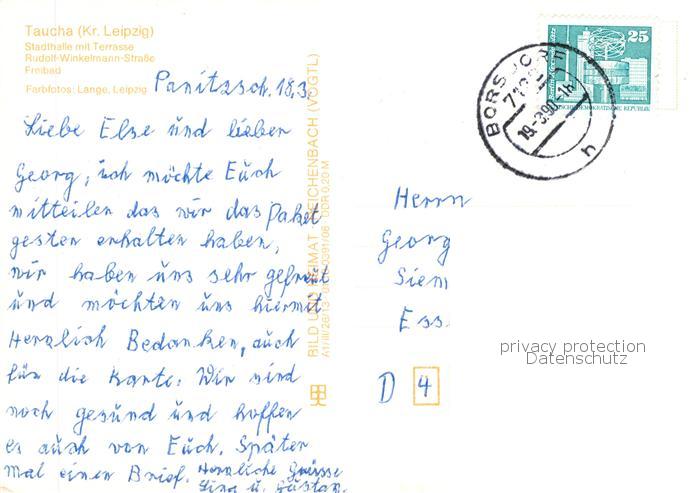 Taucha (Kr. Leipzig)
Stadthalle mit Terrasse
Rudolf-Winkelmann-Straße
Freibad
Farbfotos: Lange, Leipzig
Panitzsch. 18.3.
Liebe Else und lieber
Georg, ich möchte Euch
mitteilen das wir das Paket
gestern erhalten haben,
wir haben uns sehr gefreut
und möchten uns hiermit
Herzlich Bedanken, auch
für die Karte. Wir sind
noch gesund und hoffen
es auch von Euch. Später
mal einen Brief. Herzliche Grüsse
Lina u. Gustav.
BILD UND HEIMAT REICHENBACH (VOGTL)
A1/III/26/13 DDR 0,20 M
25
DEUTSCHE DEMOKRATISCHE REPUBLIK
BORSDORF
19.-3.90.-14
h
Herrn
Georg
Siem
Ess
D 4
privacy protection
Datenschutz